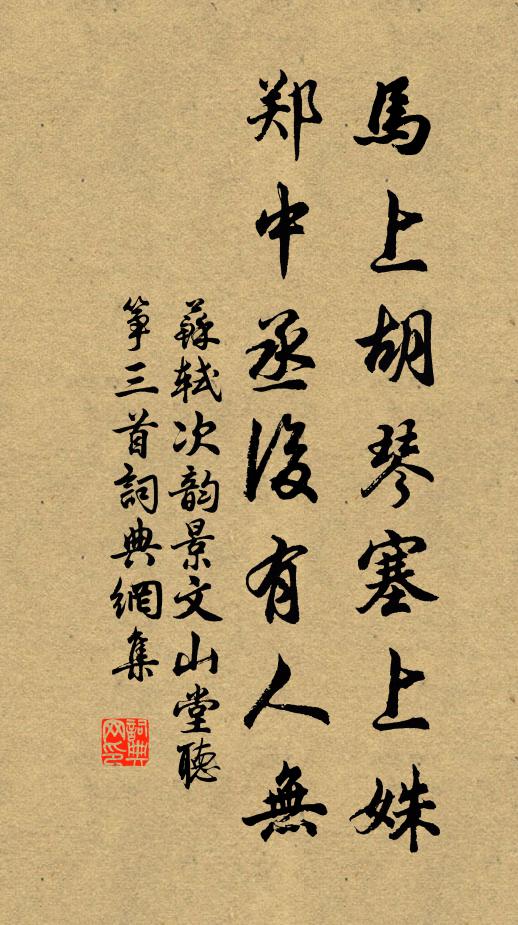 馬上胡琴塞上姝
郑中丞後有人無
蘇軾次韵景文山堂聽
筝三首詞典網集
詞典网印